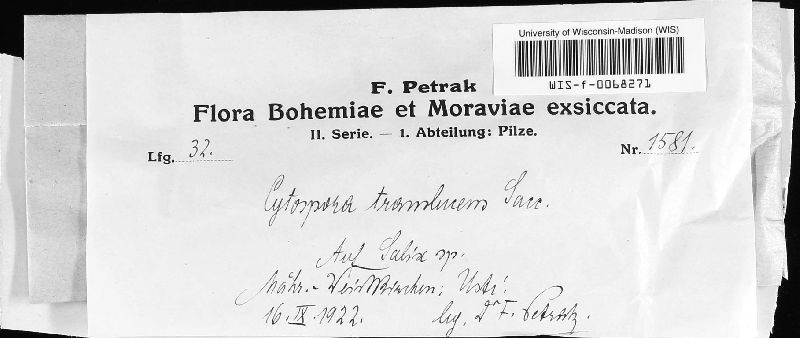 University of Wisconsin-Madison (WIS)
WIS-f-0068271
F. Petrak
Flora Bohemiae et Moraviae exsiccata.
II. Serie. — 1. Abteilung: Pilze.
Lfg. 32. Nr. 1581.
Cytospora translucens Sacc.
Auf Salix sp.
Mähr.-Weisskirchen; Ustí.
16. IX. 1922. leg. Dr F. Petrak.